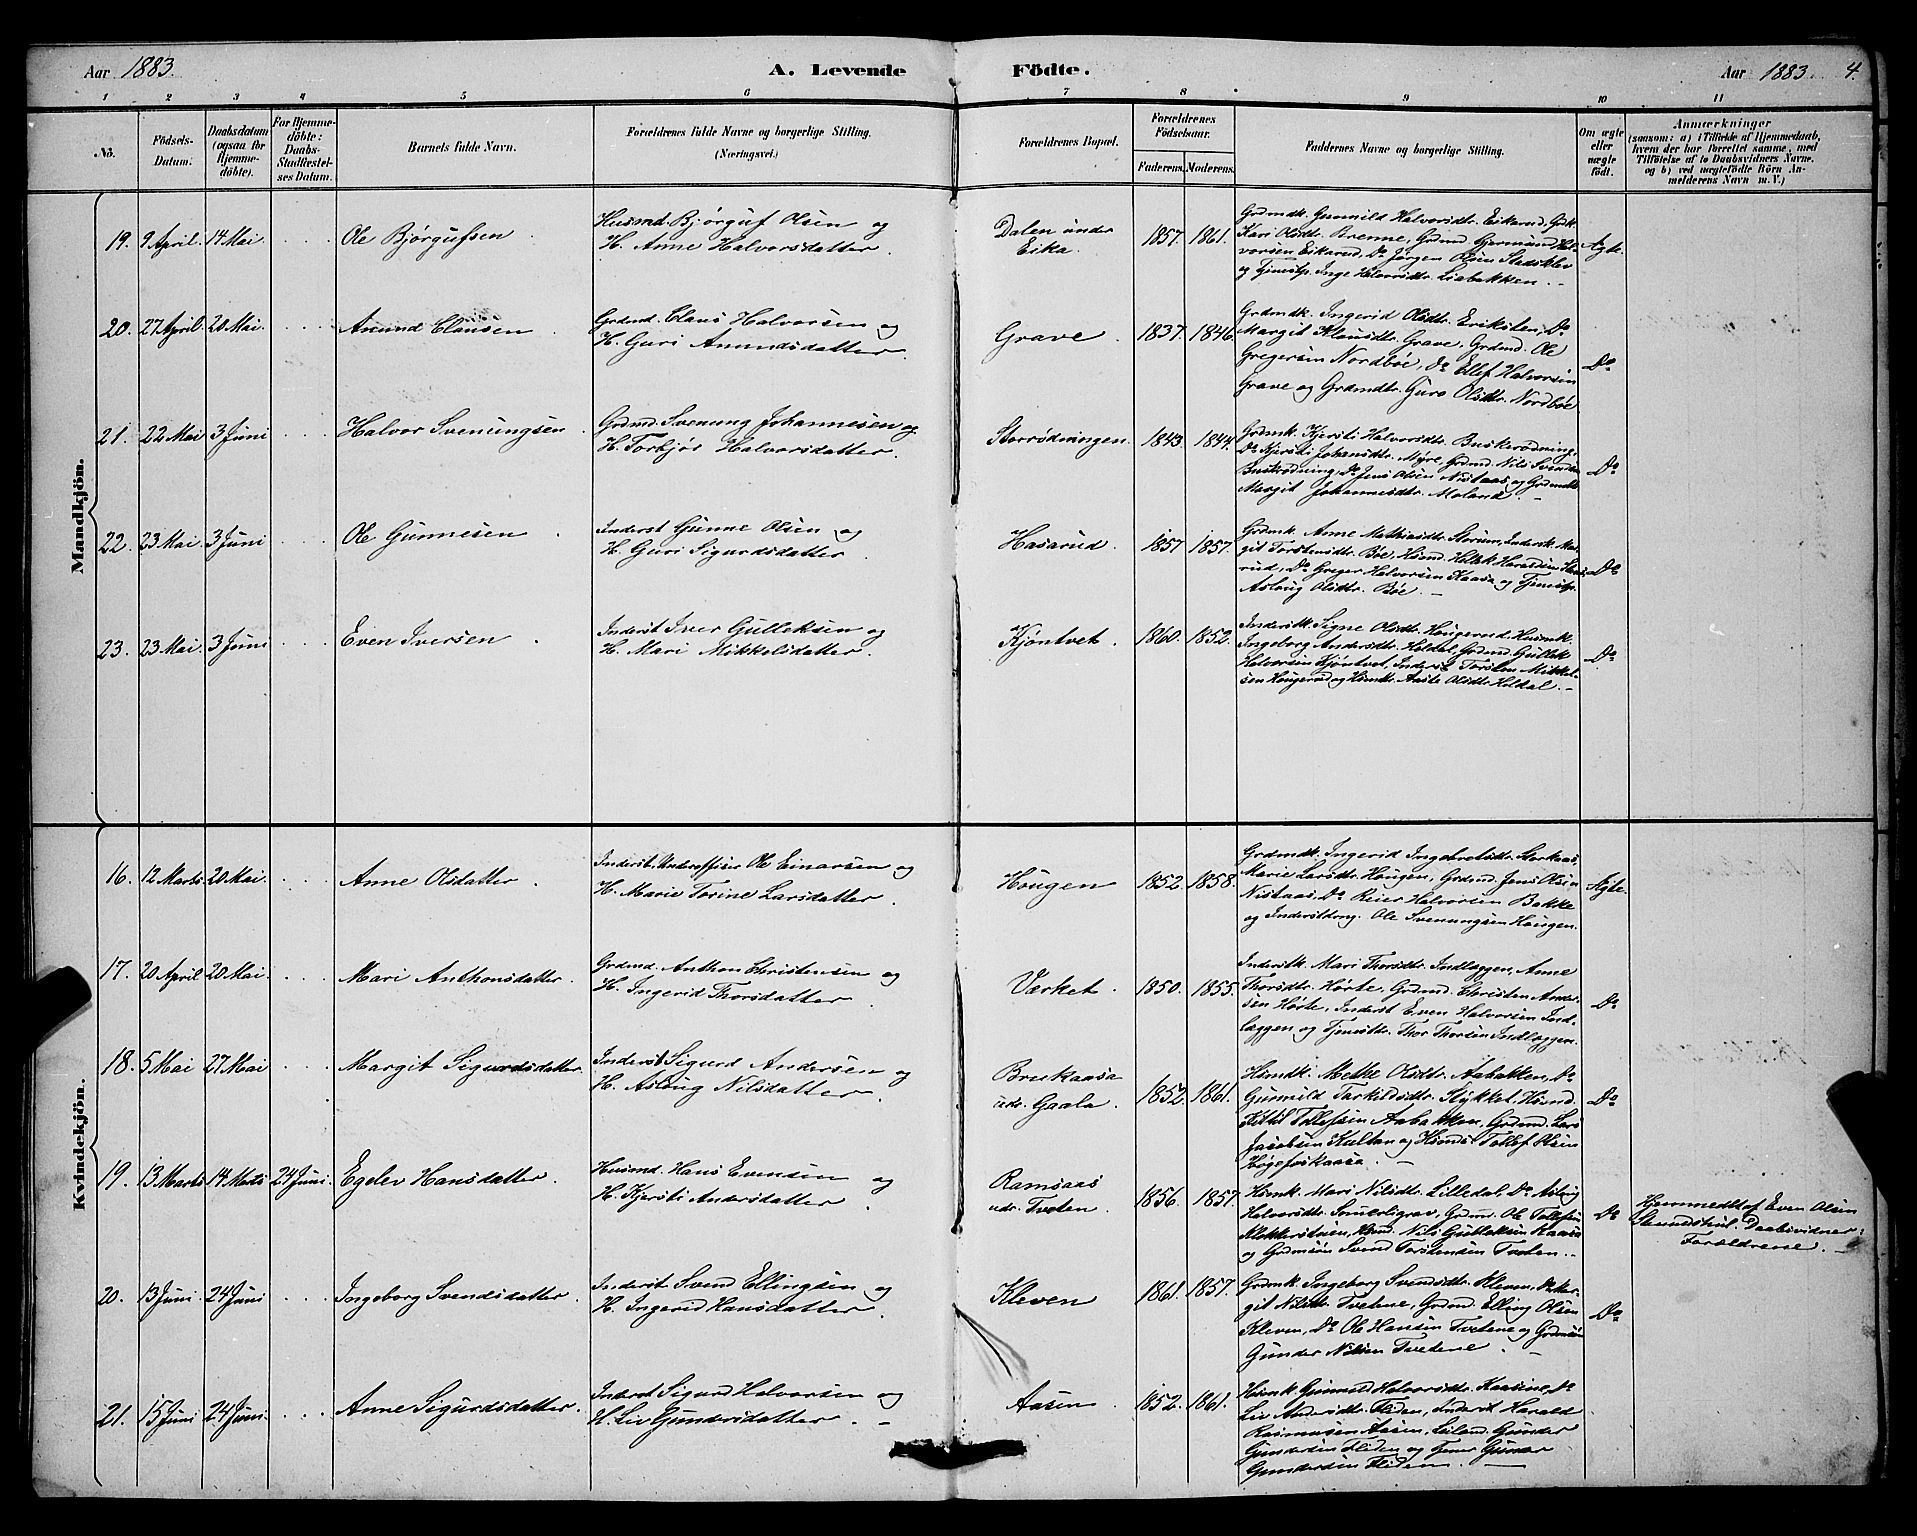 Aar 1883.
A. Levende Födte.
Aar 1883. 4.
1 2 3 4 5 6 7 8 9 10 11
No.
Födsels-Datum.
Daabsdatum (ogsaa for Hjemme-döbte).
For Hjemme-döbte: Daabs-Stadfæstel-ses Datum.
Barnets fulde Navn.
Forældrenes fulde Navne og borgerlige Stilling. (Næringsvei.)
Forældrenes Bopæl.
Forældrenes Födselsaar.
Faderens. Moderens.
Faddernes Navne og borgerlige Stilling.
Om ægte eller uægte födt.
Anmærkninger
(saasom: a) i Tilfælde af Hjemmedaab,
hvem der har forrettet samme, med
Tilföielse af to Daabsvidners Navne.
og b) ved uægtefödte Börn An-
melderens Navn m.V.)
Mandkjön.
19. 9 April. 14 Mai Ole Bjørgufsen
Husmd. Bjørguf Olsen og
H. Anne Halvorsdatter.
Dalen under
Eika.
1857. 1861.
Grdmdk. Gunnild Halvorsdtr. Eikarud, Gdk.
Kari Olsdtr. Brenne, Grdmd. Gjermund Hal-
vorsen Eikarud, Do Jørgen Olsen Stadskley
og Tjenstp. Inge Halvorsdtr. Liabakken.
Ægte.
20. 27 April. 20 Mai. Amund Clausen
Grdmd. Claus Halvorsen og
H. Guri Amundsdatter.
Grave.
1837. 1846.
Grdmdk. Ingerid Olsdtr. Eriksten, Do
Margit Klausdtr. Grave, Grdmd. Ole
Gregersen Nordbøe, Do Ellef Halvorsen
Grave og Grdmdtr. Guro Olsdtr. Nordbøe
Do
21. 22 Mai 3 Juni Halvor Svenungsen.
Grdmd. Svenung Johannesen og
H. Torbjør Halvorsdatter.
Storrødningen.
1843. 1844.
Grdmk. Kjersti Halvorsdtr. Buskerødning.
Do Kjersti Johansdtr. Myre, Grdmd. Nils Svendsen
Buskrødning, Do Jens Olsen Nistaas og Grdmdtr.
Margit Johannesdtr. Moland.
Do
22. 23 Mai. 3 Juni Ole Gunnesen
Inderst Gunne Olsen og
H. Guri Sigurdsdatter.
Hasarud.
1857 1857.
Grdmk. Anne Mathiasdtr. Storum, Indersk. Mar-
git Torstensdtr. Bøe, Husmd. Hellek Haraldsen Hasa-
rud, Do Greger Halvorsen Kaasa og Tjenstp.
Aslaug Olsdtr. Bøe.
Do
23. 23 Mai. 3 Juni Even Iversen
Inderst Iver Gulleksen og
H. Mari Mikkelsdatter.
Kjøntvet.
1860. 1852.
Inderstk. Signe Olsdtr. Hougerud, Husmk.
Ingeborg Andersdtr. Heldal, Grdmd. Gullek
Halvorsen Kjøntvet, Inderst Torsten Mikkel-
sen Hougerud og Husmdtr. Aaste Olsdtr. Heldal.
Do
Kvindekjön.
16. 12 Marts 20 Mai. Anne Olsdatter
Inderst, Underofficer Ole Einarsen og
H. Marie Torine Larsdatter.
Hougen
1852. 1858.
Grdmdk. Ingerid Ingebretsdtr. Storkaas,
Marie Larsdtr. Hougen, Grdmd. Jens Olsen
Nistaas, Do Reier Halvorsen Bakke
og Inderstdreng. Ole Svenungsen Hougen.
Ægte.
17. 20 April 20 Mai. Mari Anthonsdatter.
Grdmd. Anthon Christensen og
H. Ingerid Thorsdatter.
Værket.
1850. 1855.
Inderstk. Mari Thorsdtr. Indlæggen, Anne
Thorsdtr. Hørte, Grdmd. Christen Ander-
sen Hørte, Inderst Even Halvorsen Ind-
læggen og Tjenstdr. Thor Thorsen Indlæggen.
Do
18. 5 Mai 27 Mai Margit Sigurdsdatter
Inderst Sigurd Andersen og
H. Aslaug Nilsdatter.
Brukaasa
udr. Gaala.
1852. 1861.
Husmdk. Methe Olsdtr. Aabakken, Do
Gunnild Tarkildsdtr. Stykket, Husmd.
Kittil Tollefsen Aabakken, Grdmd. Lars
Jacobsen Kultan og Husmds. Tollef Olsen
Høgefoskaasa.
Do
19. 13 Marts 14 Marts 24 Juni. Egelev Hansdatter.
Husmd. Hans Evensen og
H. Kjersti Andersdatter.
Ramsaas
udr. Tveten.
1856. 1857.
Husmk. Mari Nilsdtr. Lilledal, Do Aslaug
Halvorsdtr. Smuerligrav, Grdmd. Ole Tollefsen
Klokkerstuen, Husmd. Nils Gulleksen Kaasa
og Grdmsøn Svend Torstensen Tveten.
Do
Hjemmedbt af Even Olsen
Daabsvidner:
Forældrene.
20. 13 Juni. 24 Juni Ingeborg Svendsdatter.
Inderst Svend Ellingsen og
H. Ingerid Hansdatter.
Kleven
1861. 1857.
Grdmk. Ingeborg Svendsdtr. Kleven, Do Mar-
git Nilsdtr. Tvetene, Grdmd. Elling Olsen
Kleven, Do Ole Hansen Tvetene og Grdmsøn
Gunder Nilsen Tvetene.
Do
21. 15 Juni 24 Juni. Anne Sigurdsdatter.
Inderst Sigurd Halvorsen og
H. Liv Gundersdatter.
Aasen.
1852. 1861.
Husmk. Gunnild Halvorsdtr. Kaasine, Do
Liv Andersdtr. Fliden, Inderst Harald
Rasmussen Aasen, Leiland. Gunder
Gundersen Fliden og Gunder
Gundersen Fliden.